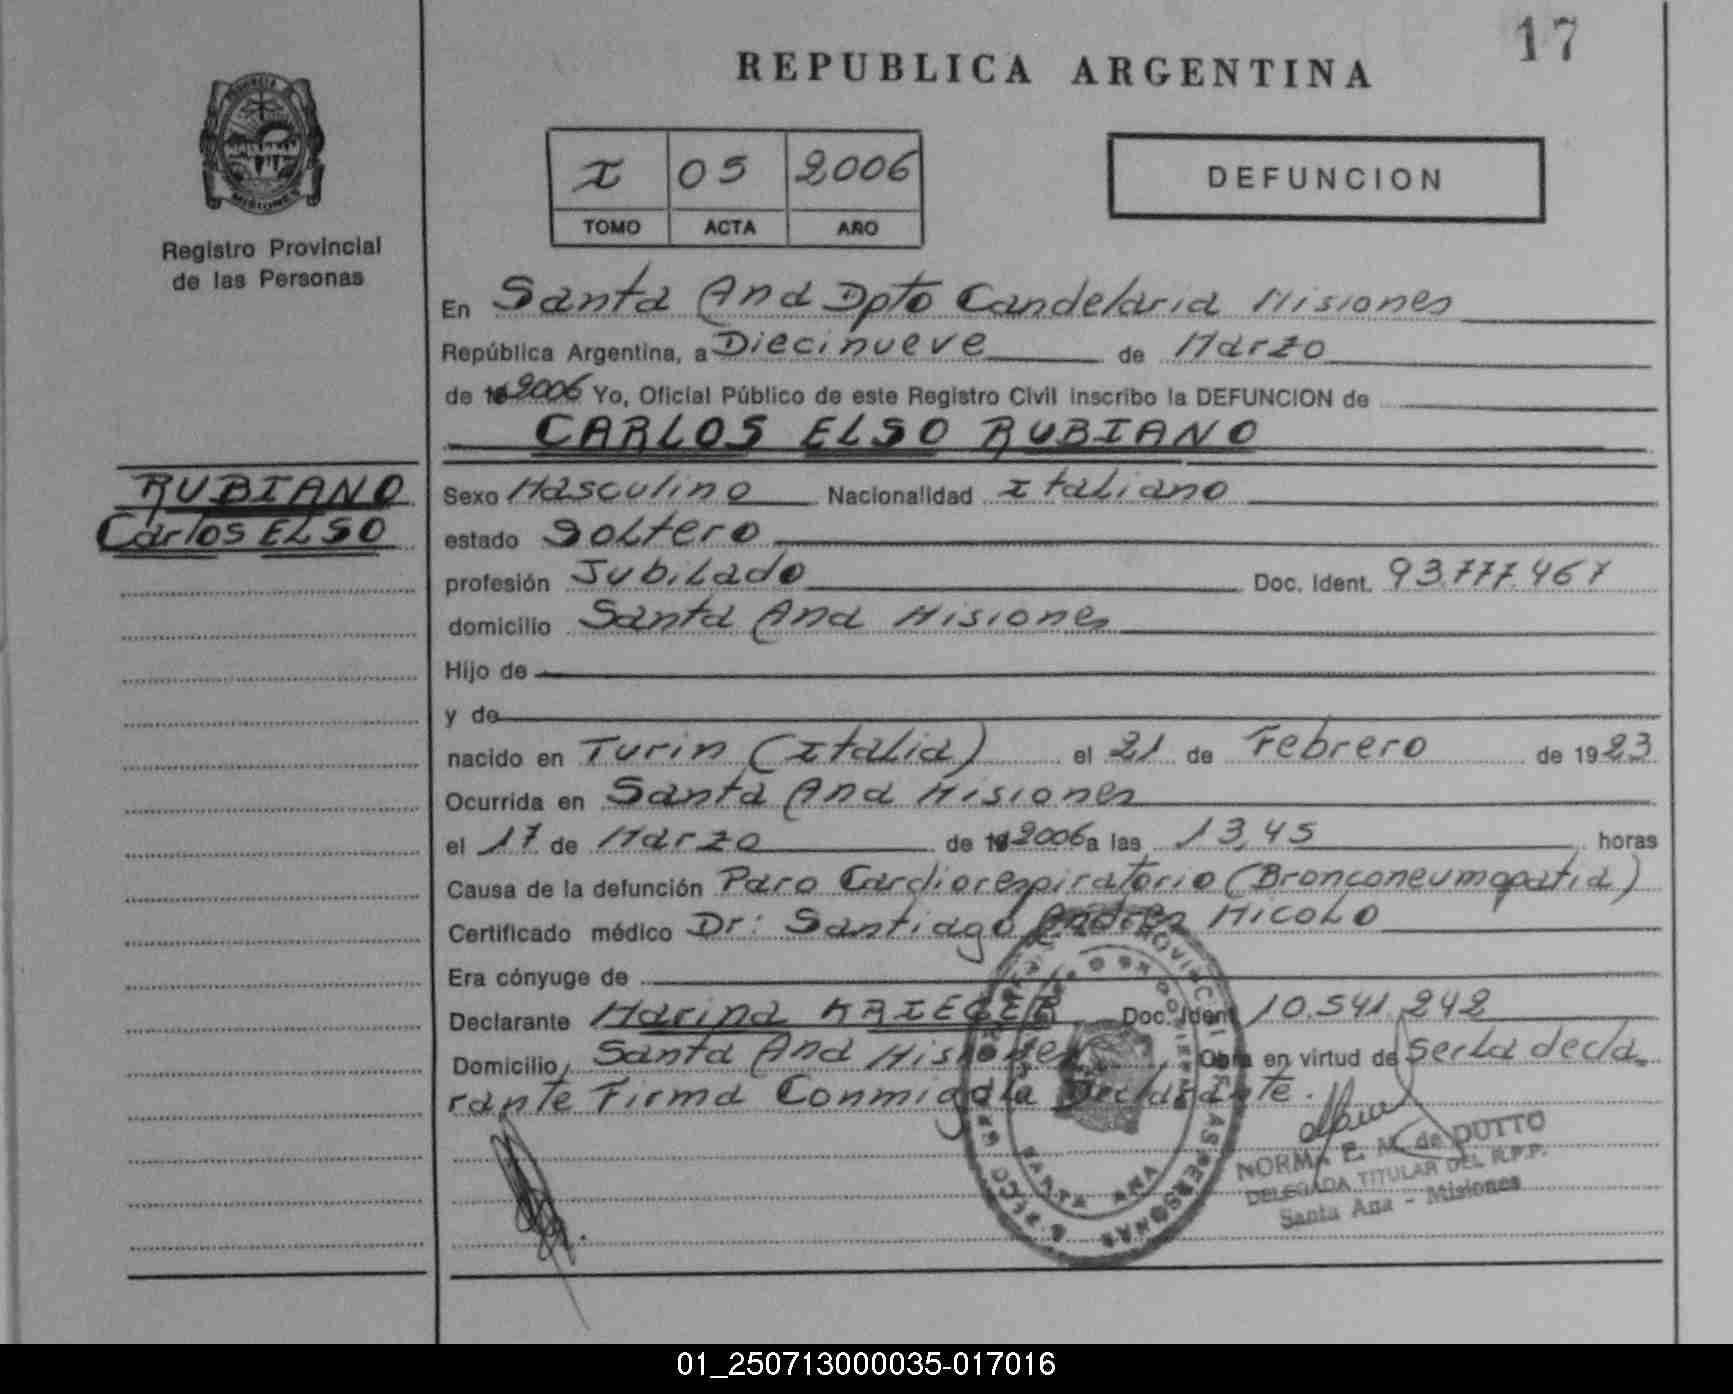 17
REPUBLICA ARGENTINA
I 05 2006
TOMO ACTA AÑO
DEFUNCION
Registro Provincial
de las Personas
En Santa Ana Dpto Candelaria Misiones
República Argentina, a Diecinueve de Marzo
de 2006 Yo, Oficial Público de este Registro Civil inscribo la DEFUNCION de
CARLOS ELSO RUBIANO
RUBIANO
Carlos ELSO
Sexo Masculino Nacionalidad Italiano
estado Soltero
profesión Jubilado Doc. Ident. 93.777.467
domicilio Santa Ana Misiones
Hijo de
y de
nacido en Turin (Italia) el 21 de Febrero de 1923
Ocurrida en Santa Ana Misiones
el 17 de Marzo de 2006 a las 13,45 horas
Causa de la defunción Paro Cardiorespiratorio (Bronconeumopatia)
Certificado médico Dr: Santiago Andres Micolo
Era cónyuge de
Declarante Marina KRIEGER Doc. Ident 10.541.242
Domicilio Santa Ana Misiones Obra en virtud de Ser la decla
rante Firma Conmigo la Declarante.
NORMA E. M. de DUTTO
DELEGADA TITULAR DEL R.P.P.
Santa Ana - Misiones
SANTA ANA
01_250713000035-017016